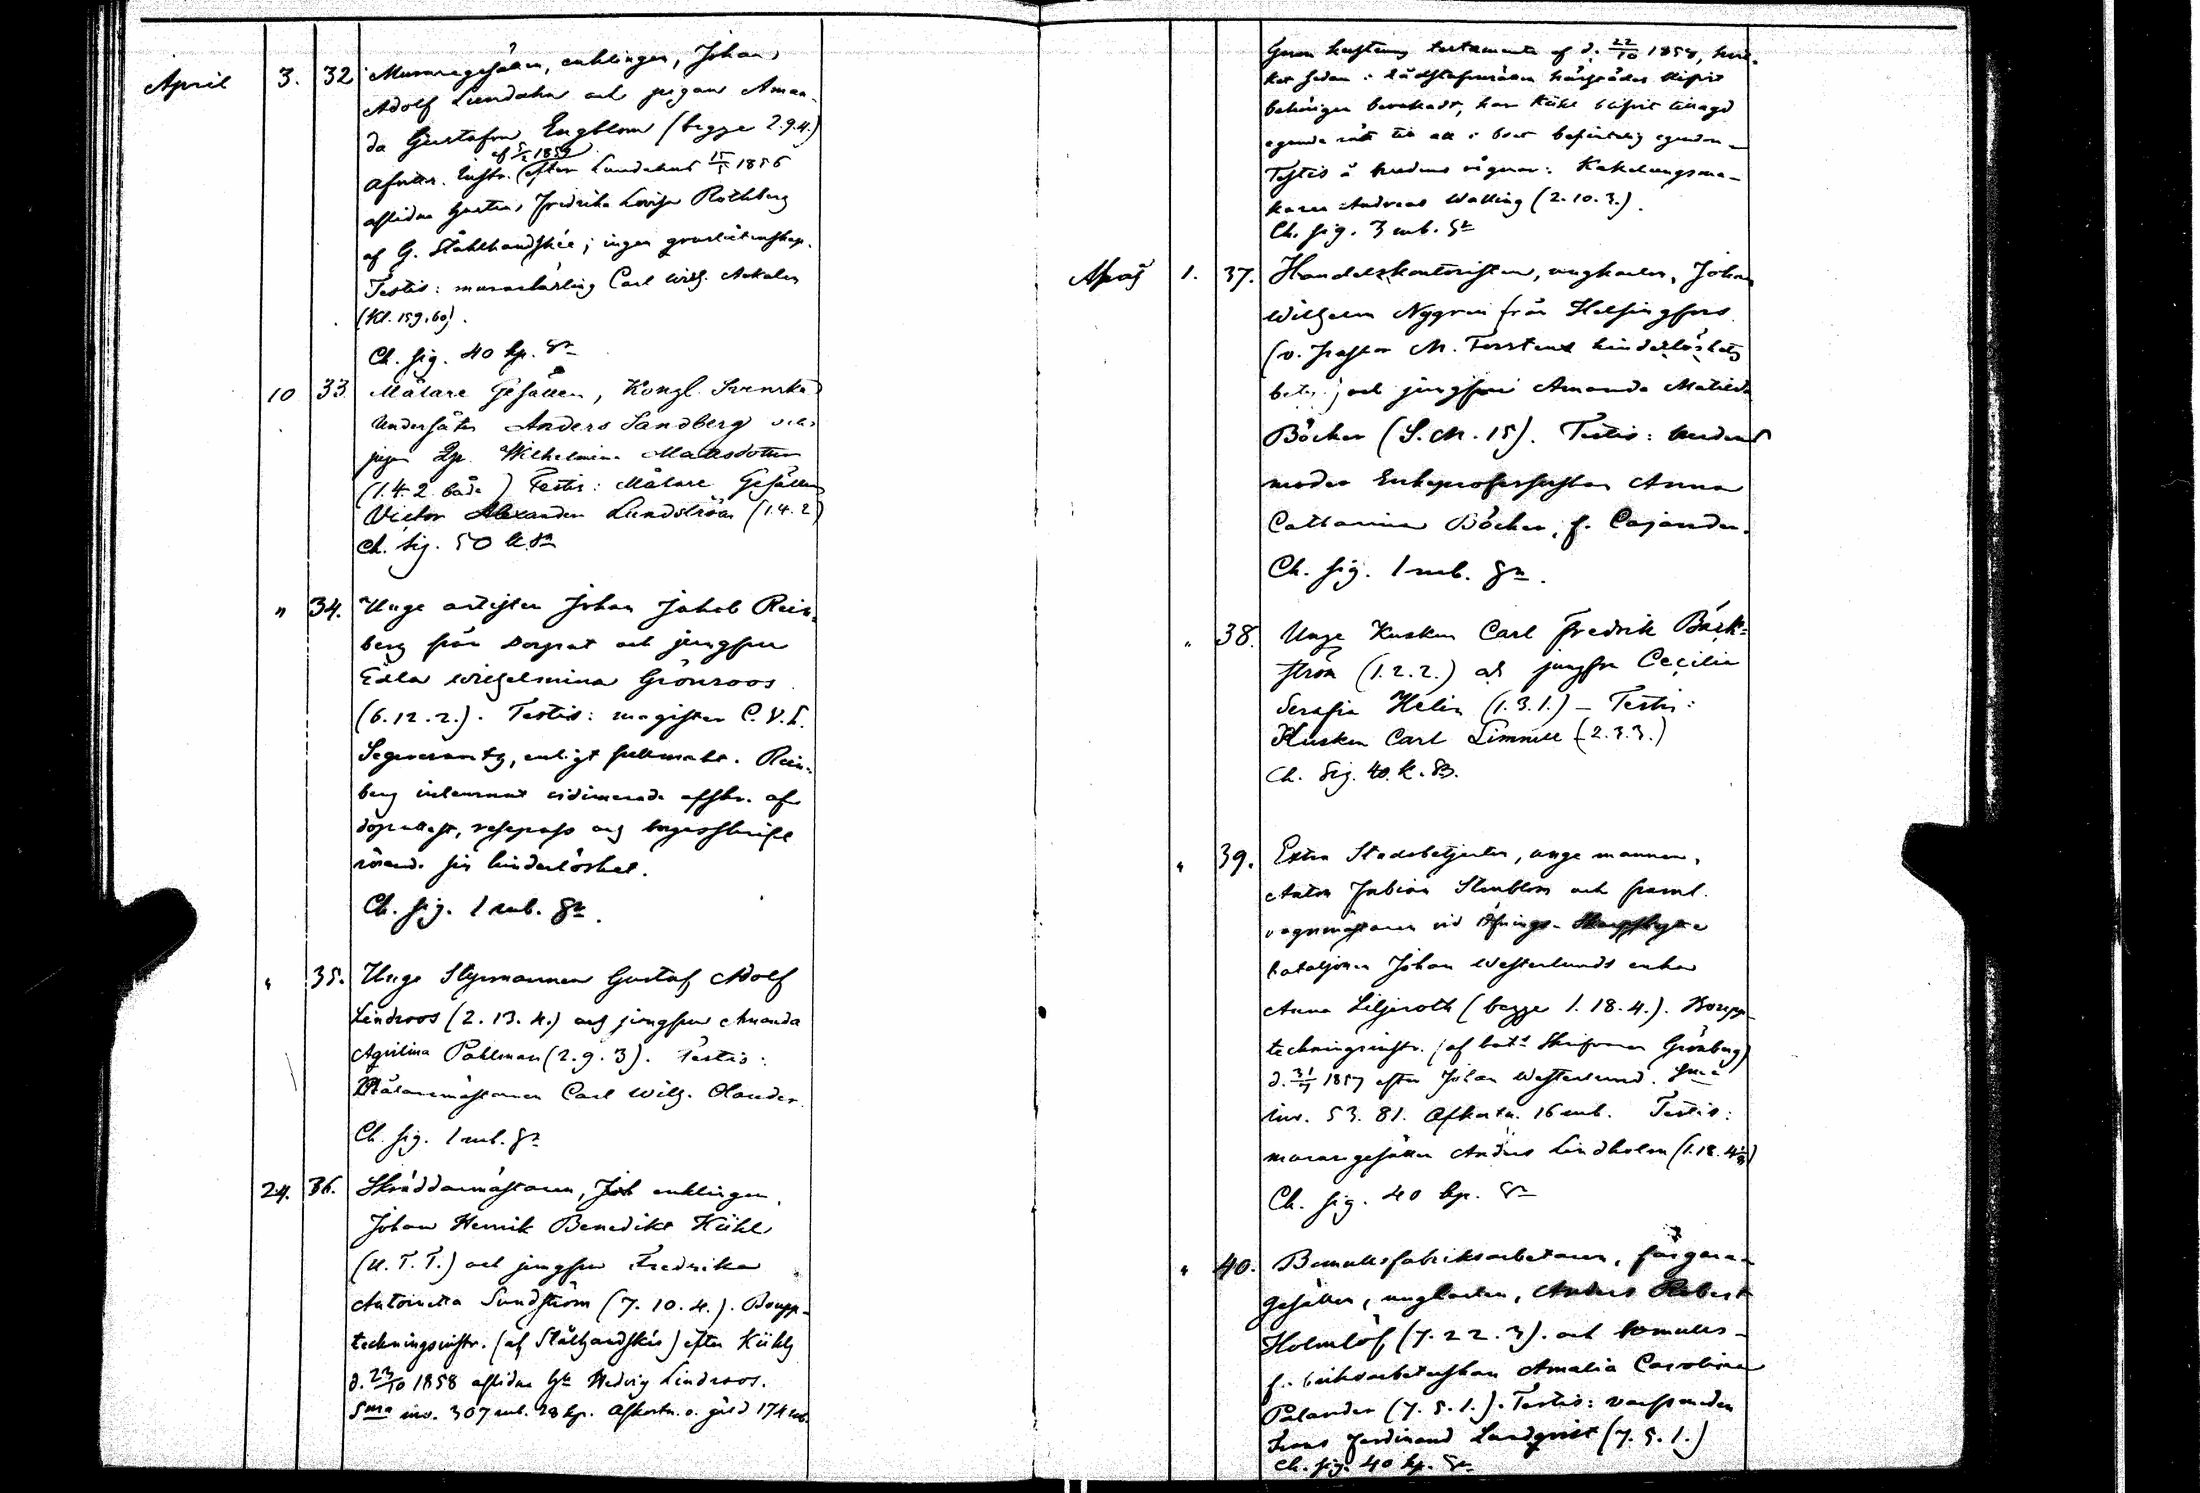 April 3. 32 Muraregesällen, enklingen, Johan
Adolf Lundahn och pigan Aman-
da Gustafva Engblom (begge 2.9.4.)
af 5/2 1859
Afvittr. instr. efter Lundahns 15/5 1856
aflidna hustru, Fredrika Lovisa Rothberg
af G. Stålhandské; ingen
Testis: murarlärling Carl Wilh.
(Kl. 159.60).
Ch. sig. 40 kp. Sr
10 33 Målare Gesällen, Kongl. Svenska
Undersåten Anders Sandberg och
pigan Wilhelmina Mattsdotter
(1.4.2 både) Testis: Målare Gesällen
Victor Alexander Lundström (1.4.2)
Ch. sig. 50 k. Sr
" 34. Unge artisten Johan Jakob Rein-
berg från Dorpat och jungfru
Edla Wilhelmina Grönroos
(6.12.2.). Testis: magister C.V.L.
Segercrantz, enligt fullmakt. Rein-
berg inlemnat vidimerade afskr. af
döpattest, respass och borgesskrift
rörande sin hinderlöshet.
Ch. sig. 1 rub. Sr.
" 35. Unge Styrmannen Gustaf Adolf
Lindroos (2.13.4.) och jungfru Amanda
Agrilina Pahlman (2.9.3). Testis:
Målaremästaren Carl Wilh. Olander.
Ch. sig. 1 rub. Sr
24. 36. Skräddarmästaren, enklingen,
Johan Henrik Benedikt Kühl
(U.T.T.) och jungfru Fredrika
Antoinetta Sundström (7.10.4.). Boupp-
teckningsinstr. (af Stålhandské) efter Kühls
d. 23/10 1858 aflidna h. Hedvig Lindroos.
Sma inv. 307 rub. 28 kp. Afkortn. o. gäld 174 rub.
Genom hustruns testamente af d. 22/10 1858, hvil-
ket sedan i rådstufvurätten blifvit
behörigen bevakadt, har Kühl blifvit tillagd
egande rätt till all i boet befintelig egendom
Testis å brudens vägnar: Kakelugnsma-
karen Andreas Walling (2.10.3.).
Ch. sig. 3 rub. Sr
Maj 1. 37. Handelskontoristen, ungkarlen, Johan
Wilhelm Nygren från Helsingfors
(v. pastor M. Forstens hinderlöshets
betyg) och jungfru Amanda Matilda
Böcker (S.M.15). Testis: brudens
moder Enkeprofessorskan Anna
Catharina Böcker, f. Cajander.
Ch. sig. 1 rub. Sr.
" 38. Unge Kusken Carl Fredrik Bäck-
ström (1.2.2.) och jungfru Cecilia
Serafia Helin (1.3.1.) – Testis:
Kusken Carl Limnell (2.3.3.)
Ch. Sig. 40. k. Sr.
" 39. Extra Stadsbetjenten, unge mannen,
Anton Fabian Stenblom och framl.
vagnmästaren vid Åfnings- Skarpskytte
bataljonen Johan Westerlunds enka
Anna Liljeroth (begge 1.18.4.). Boupp-
teckningsinstr. (af bat:s Skrifvaren Grönberg)
d. 31/7 1857 efter Johan Westerlund. Sma
inv. 53.81. Afkortn. 16 rub. Testis:
muraregesällen Anders Lindholm (1.18.4)
Ch. sig. 40 kp. Sr
" 40. Bomullsfabriksarbetaren, färgare-
gesällen, ungkarlen, Anders Robert
Holmlöf (7.22.3). och bomulls-
fabriksarbeterskan Amalia Carolina
Palander (7.5.1.). Testis:
Frans Ferdinand Landqvist (7.5.1.)
Ch. sig. 40 kp. Sr